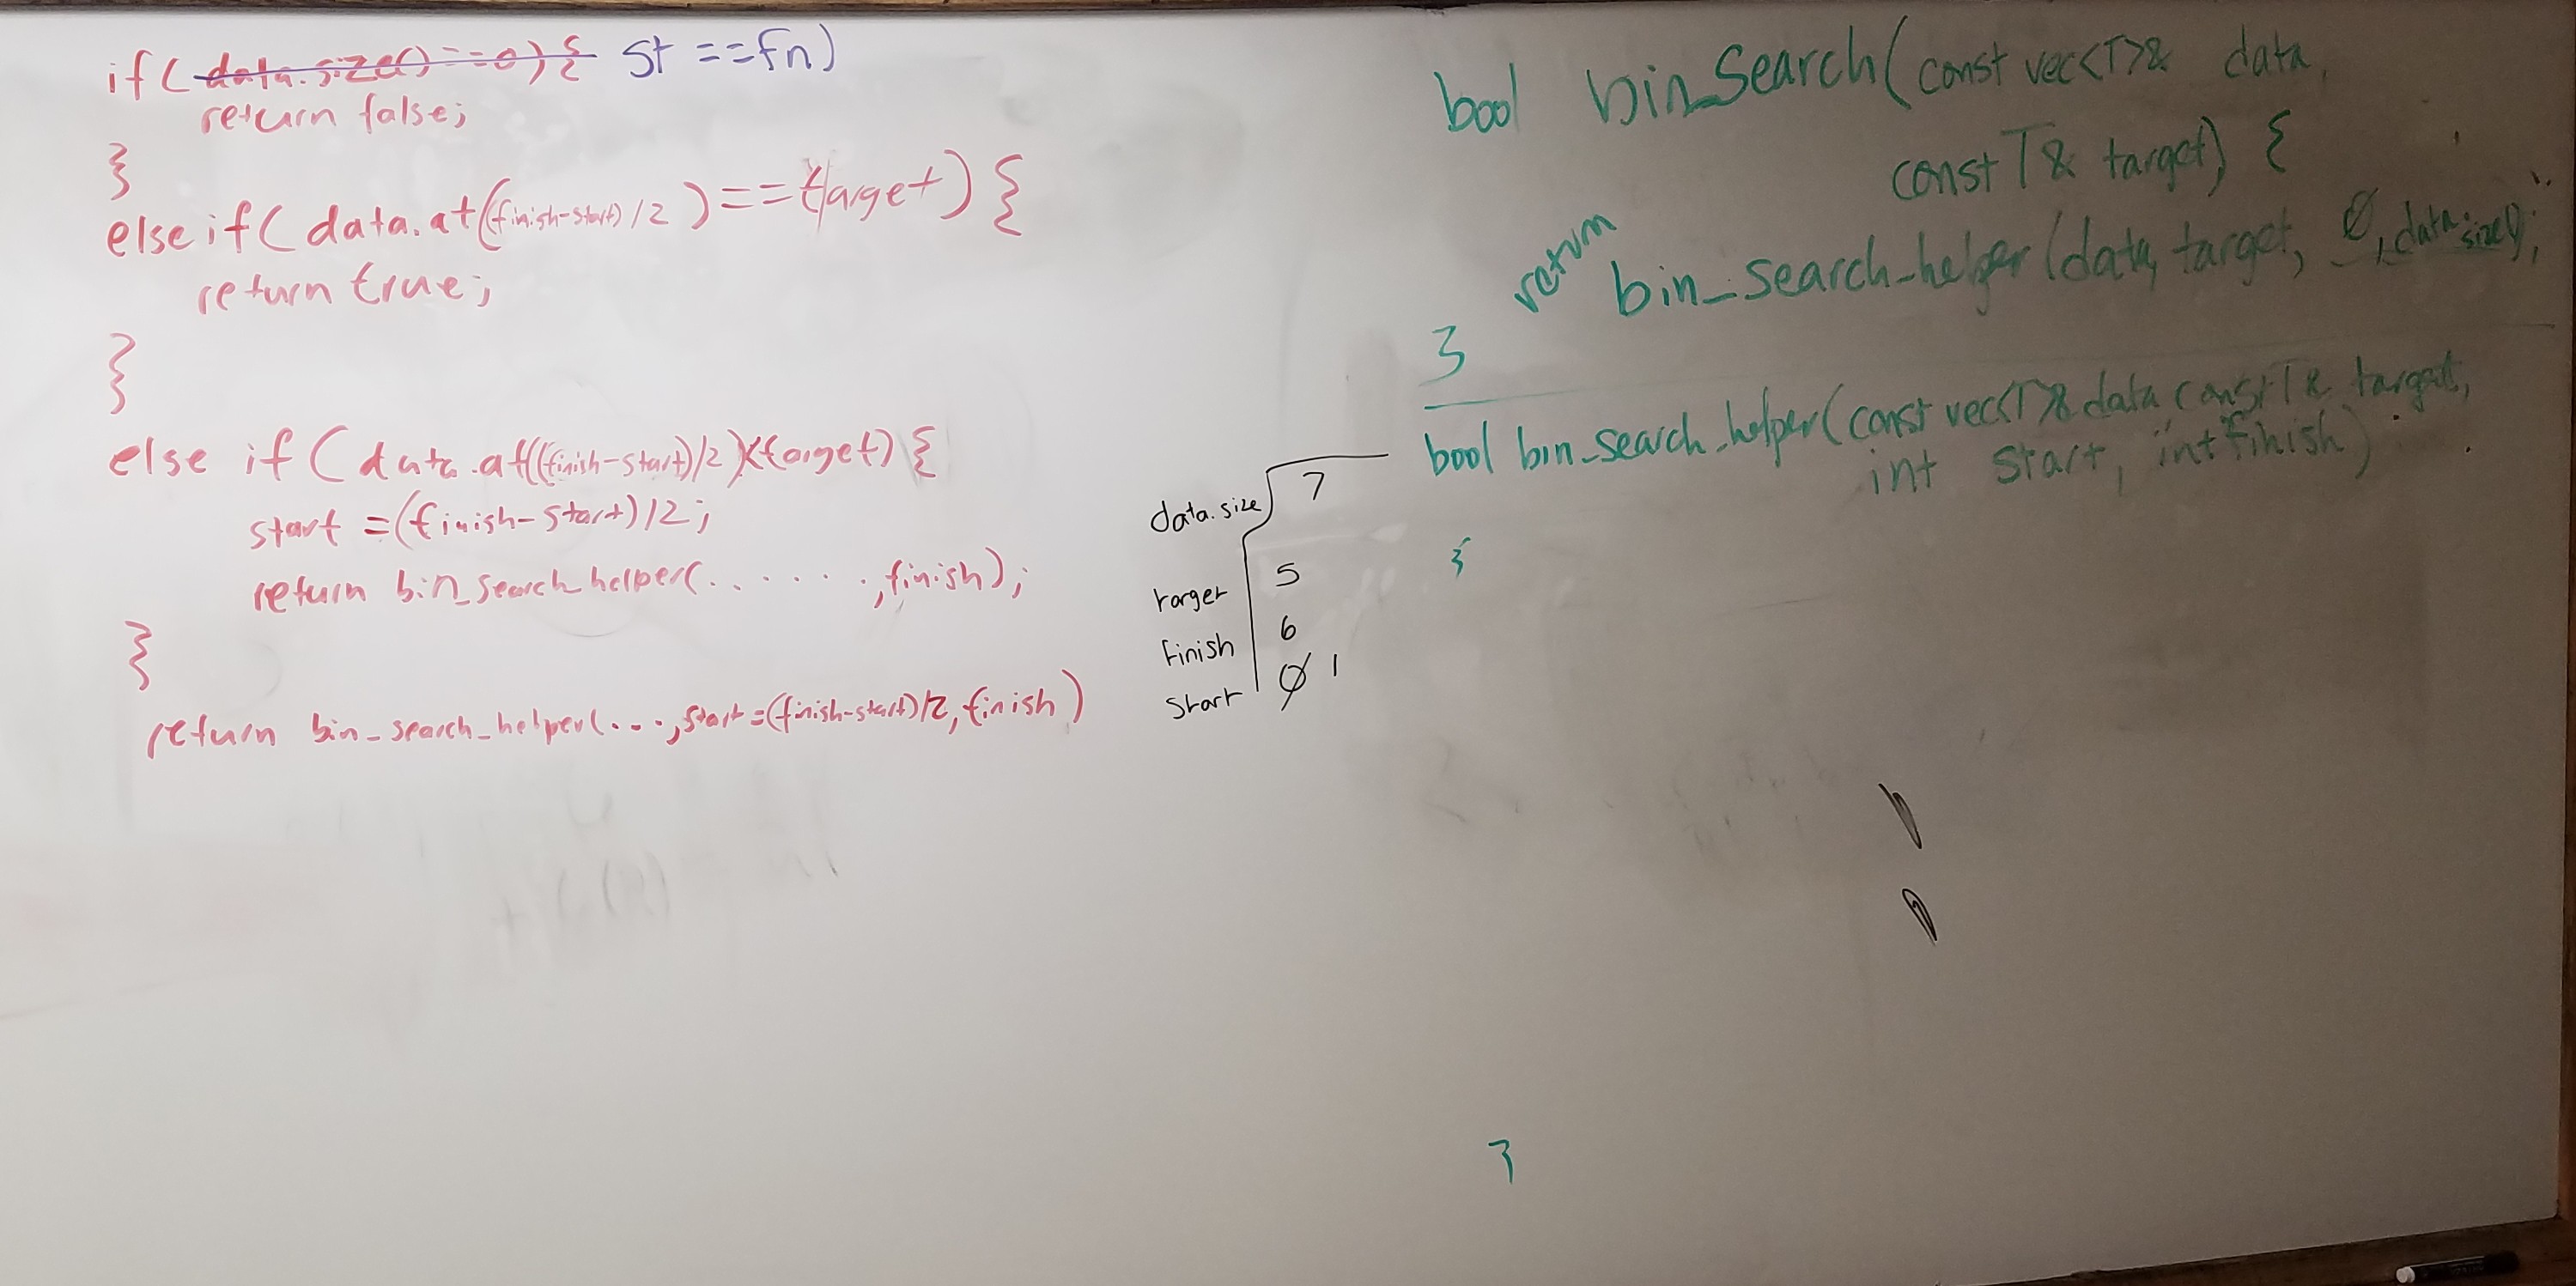 if( data.size() == 0){ st == fn)
return false;
}
else if( data.at((finish-start)/2) == target) {
return true;
}
else if( data.at((finish-start)/2)<target) {
start =(finish-start)/2;
return bin_search_helper(. . . . . . ,finish);
}
return bin_search_helper(. . . ,start=(finish-start)/2, finish)
data.size 7
target 5
finish 6
start 0 1
bool bin_search(const vec<T>& data,
const T& target) {
return bin_search_helper(data, target, 0, data.size());
}
bool bin_search_helper(const vec<T>& data const T& target,
int start, int finish)
{
}